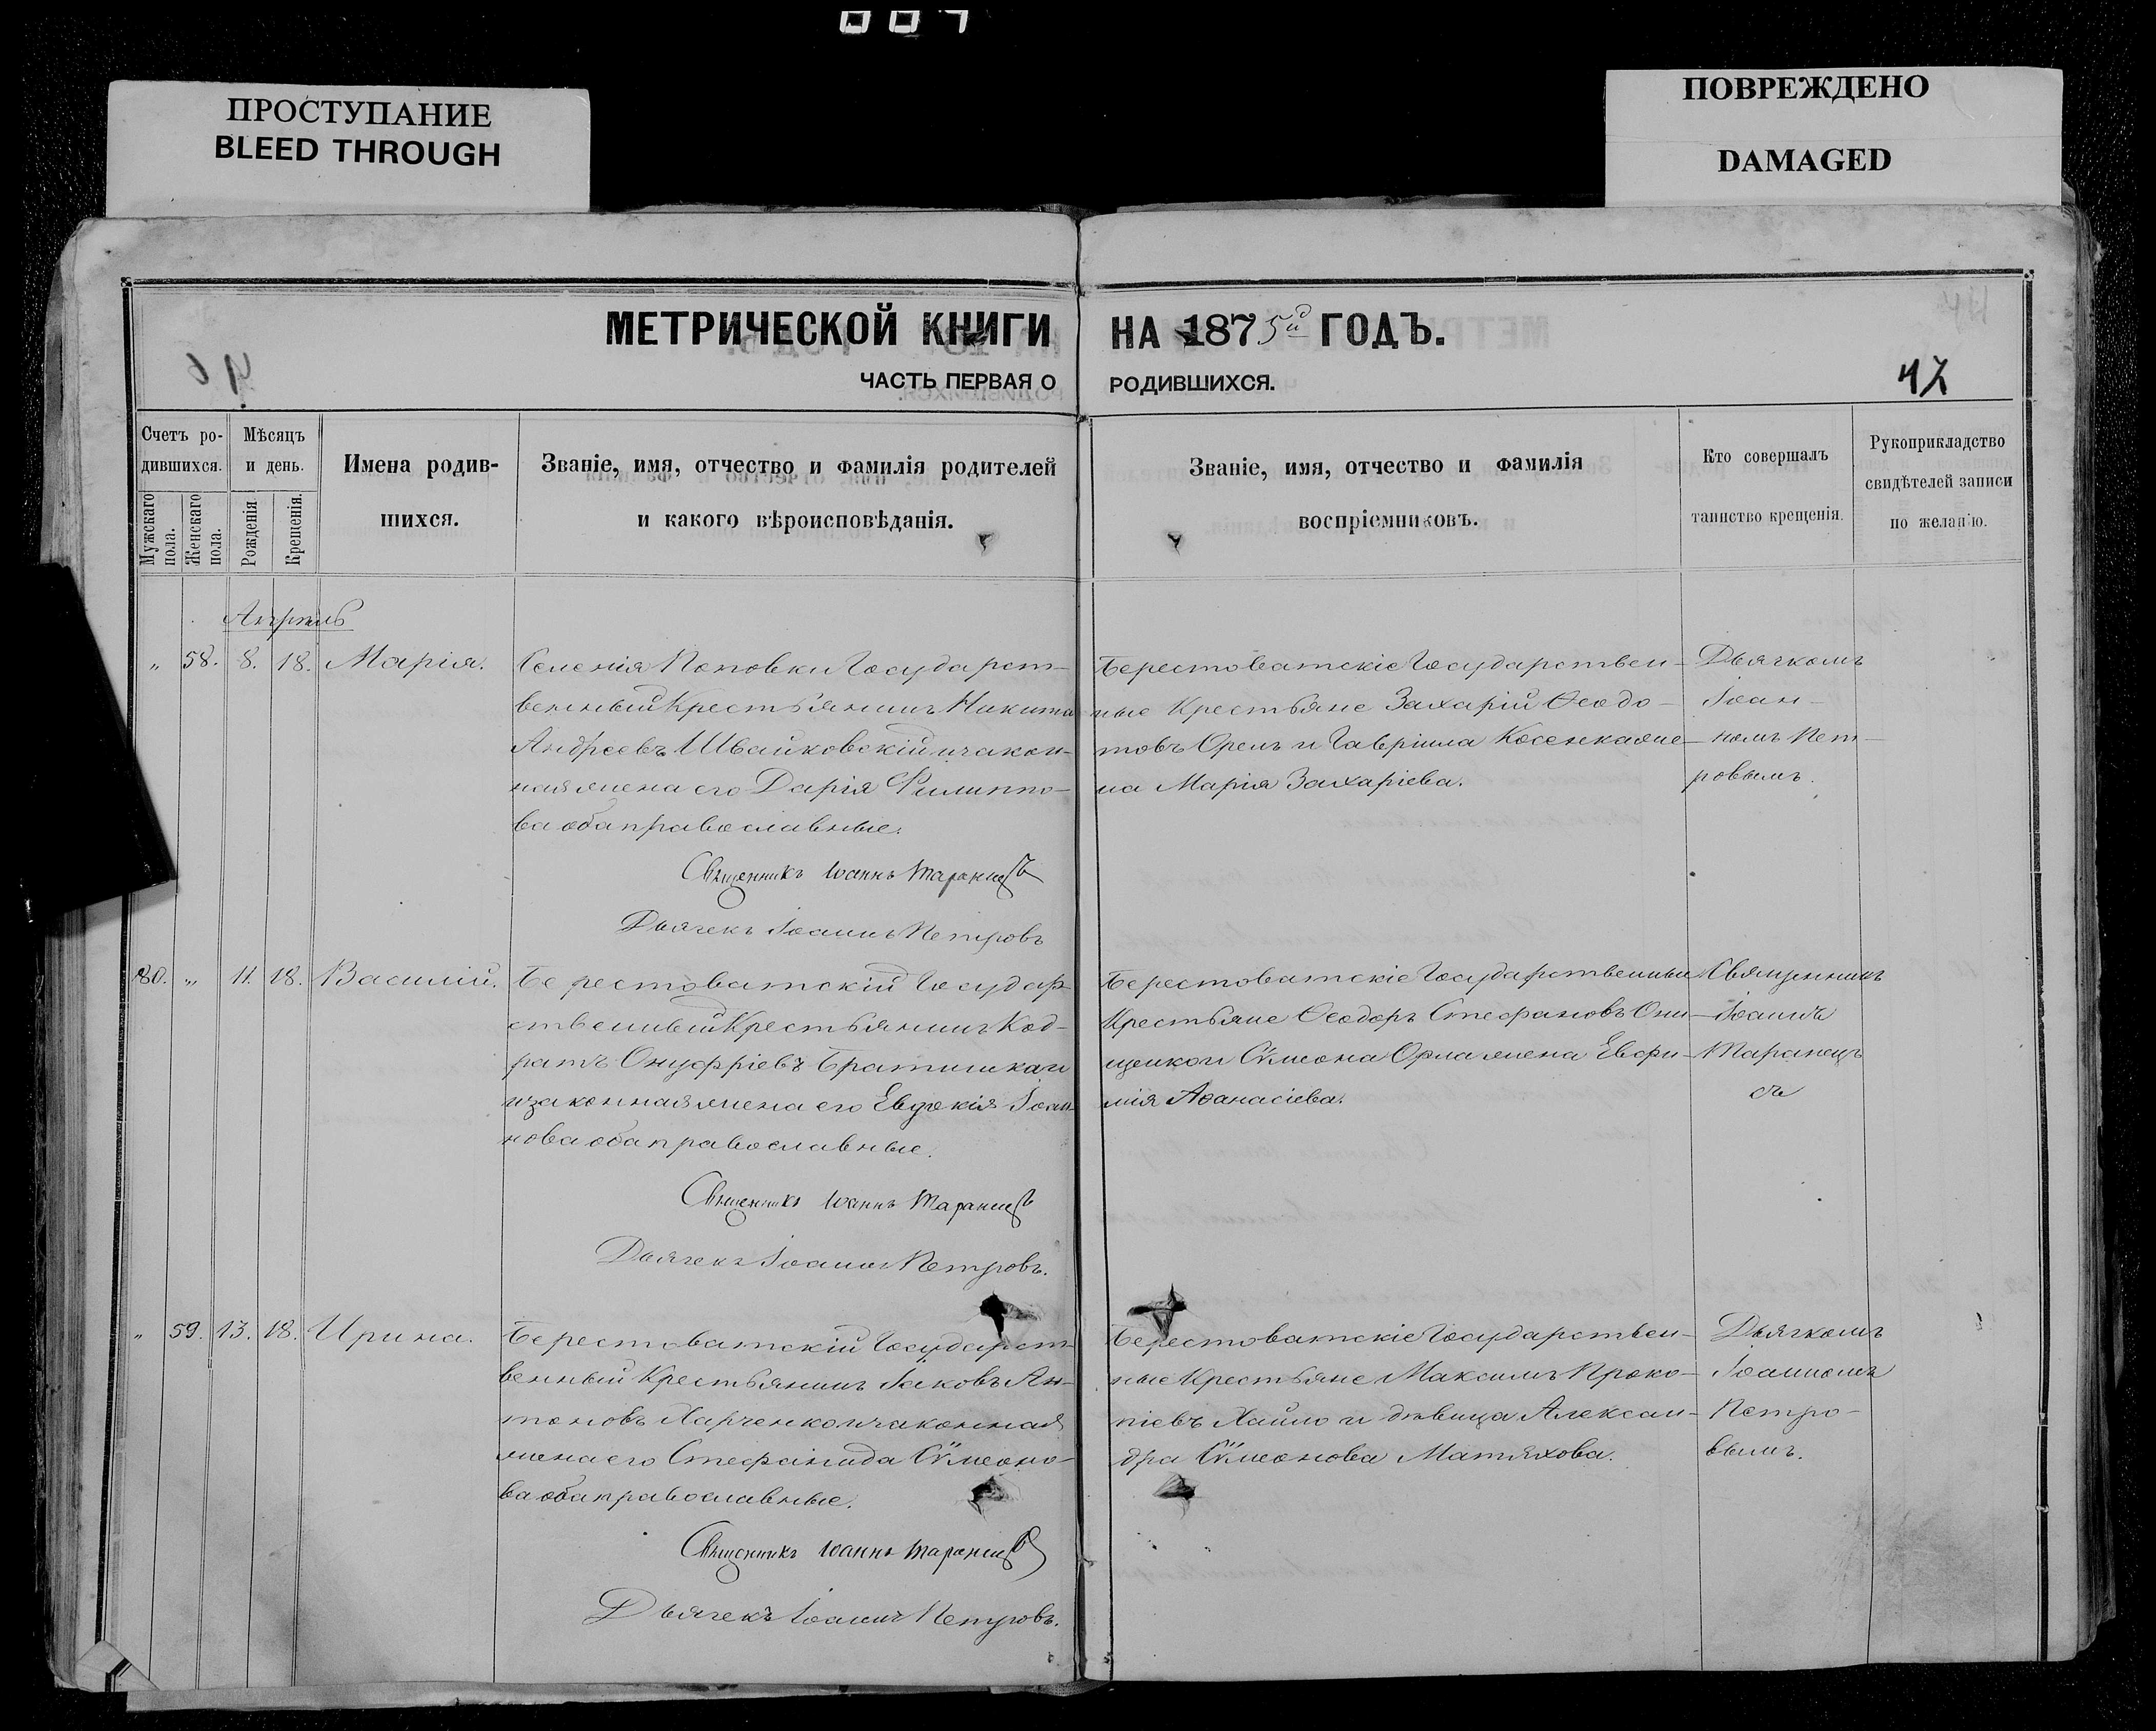 007
ПРОСТУПАНИЕ
BLEED THROUGH
ПОВРЕЖДЕНО
DAMAGED
МЕТРИЧЕСКОЙ КНИГИ НА 1875й ГОДЪ.
ЧАСТЬ ПЕРВАЯ О РОДИВШИХСЯ.
47
Счетъ ро-
дившихся.
Мужскаго пола.
Женскаго пола.
Мѣсяцъ
и день.
Рожденія
Крещенія.
Имена родив-
шихся.
Званіе, имя, отчество и фамилія родителей
и какого вѣроисповѣданія.
Званіе, имя, отчество и фамилія
воспріемниковъ.
Кто совершалъ
таинство крещенія.
Рукоприкладство
свидѣтелей записи
по желанію.
Апрѣль
„ 58. 8. 18. Марія.
Селенія Поповки Государст-
венный Крестьянинъ Никита
Андреевъ Швайковскій и закон-
ная жена его Дарія Филиппо-
ва оба православные.
Священникъ Іоаннъ Таранецъ
Дьячекъ Іоаннъ Петровъ
Берестоватскіе Государствен-
ные Крестьяне Захарій Ѳеодо-
товъ Орелъ и Гавріила Косенка же-
на Марія Захаріева.
Дьячкомъ
Іоан-
номъ Пет-
ровымъ.
80. „ 11. 18. Василій.
Берестоватскій Государ-
ственный Крестьянинъ Код-
ратъ Онуфріевъ Братишка и
и законная жена его Евдокія Іоан-
нова оба православные.
Священникъ Іоаннъ Таранецъ
Дьячекъ Іоаннъ Петровъ.
Берестоватскіе Государственные
Крестьяне Ѳеодоръ Стефановъ Они-
щенко и Сѵмеона Орла жена Евфи-
мія Аѳанасіева.
Священникъ
Іоаннъ
Таранецъ
59. 13. 18. Ирина.
Берестоватскій Государст-
венный Крестьянинъ Іаковъ Ан-
тоновъ Харченко и законная
жена его Стефанида Сѵмеоно-
ва оба православные.
Священникъ Іоаннъ Таранецъ
Дьячекъ Іоаннъ Петровъ.
Берестоватскіе Государствен-
ные Крестьяне Максимъ Проко-
піевъ Хайло и дѣвица Алексан-
дра Сѵмеонова Матяхова.
Дьячкомъ
Іоанномъ
Петро-
вымъ.